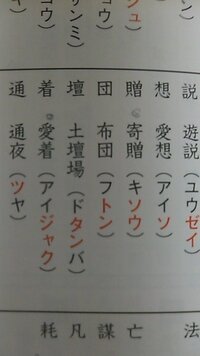 ン）
ュ）
ョウ）
サンミ）
コウ）
説 遊説（ユウゼイ）
想 愛想（アイソ）
贈 寄贈（キソウ）
団 布団（フトン）
壇 土壇場（ドタンバ）
着 愛着（アイジャク）
通 通夜（ツヤ）
法
亡
謀
凡
耗